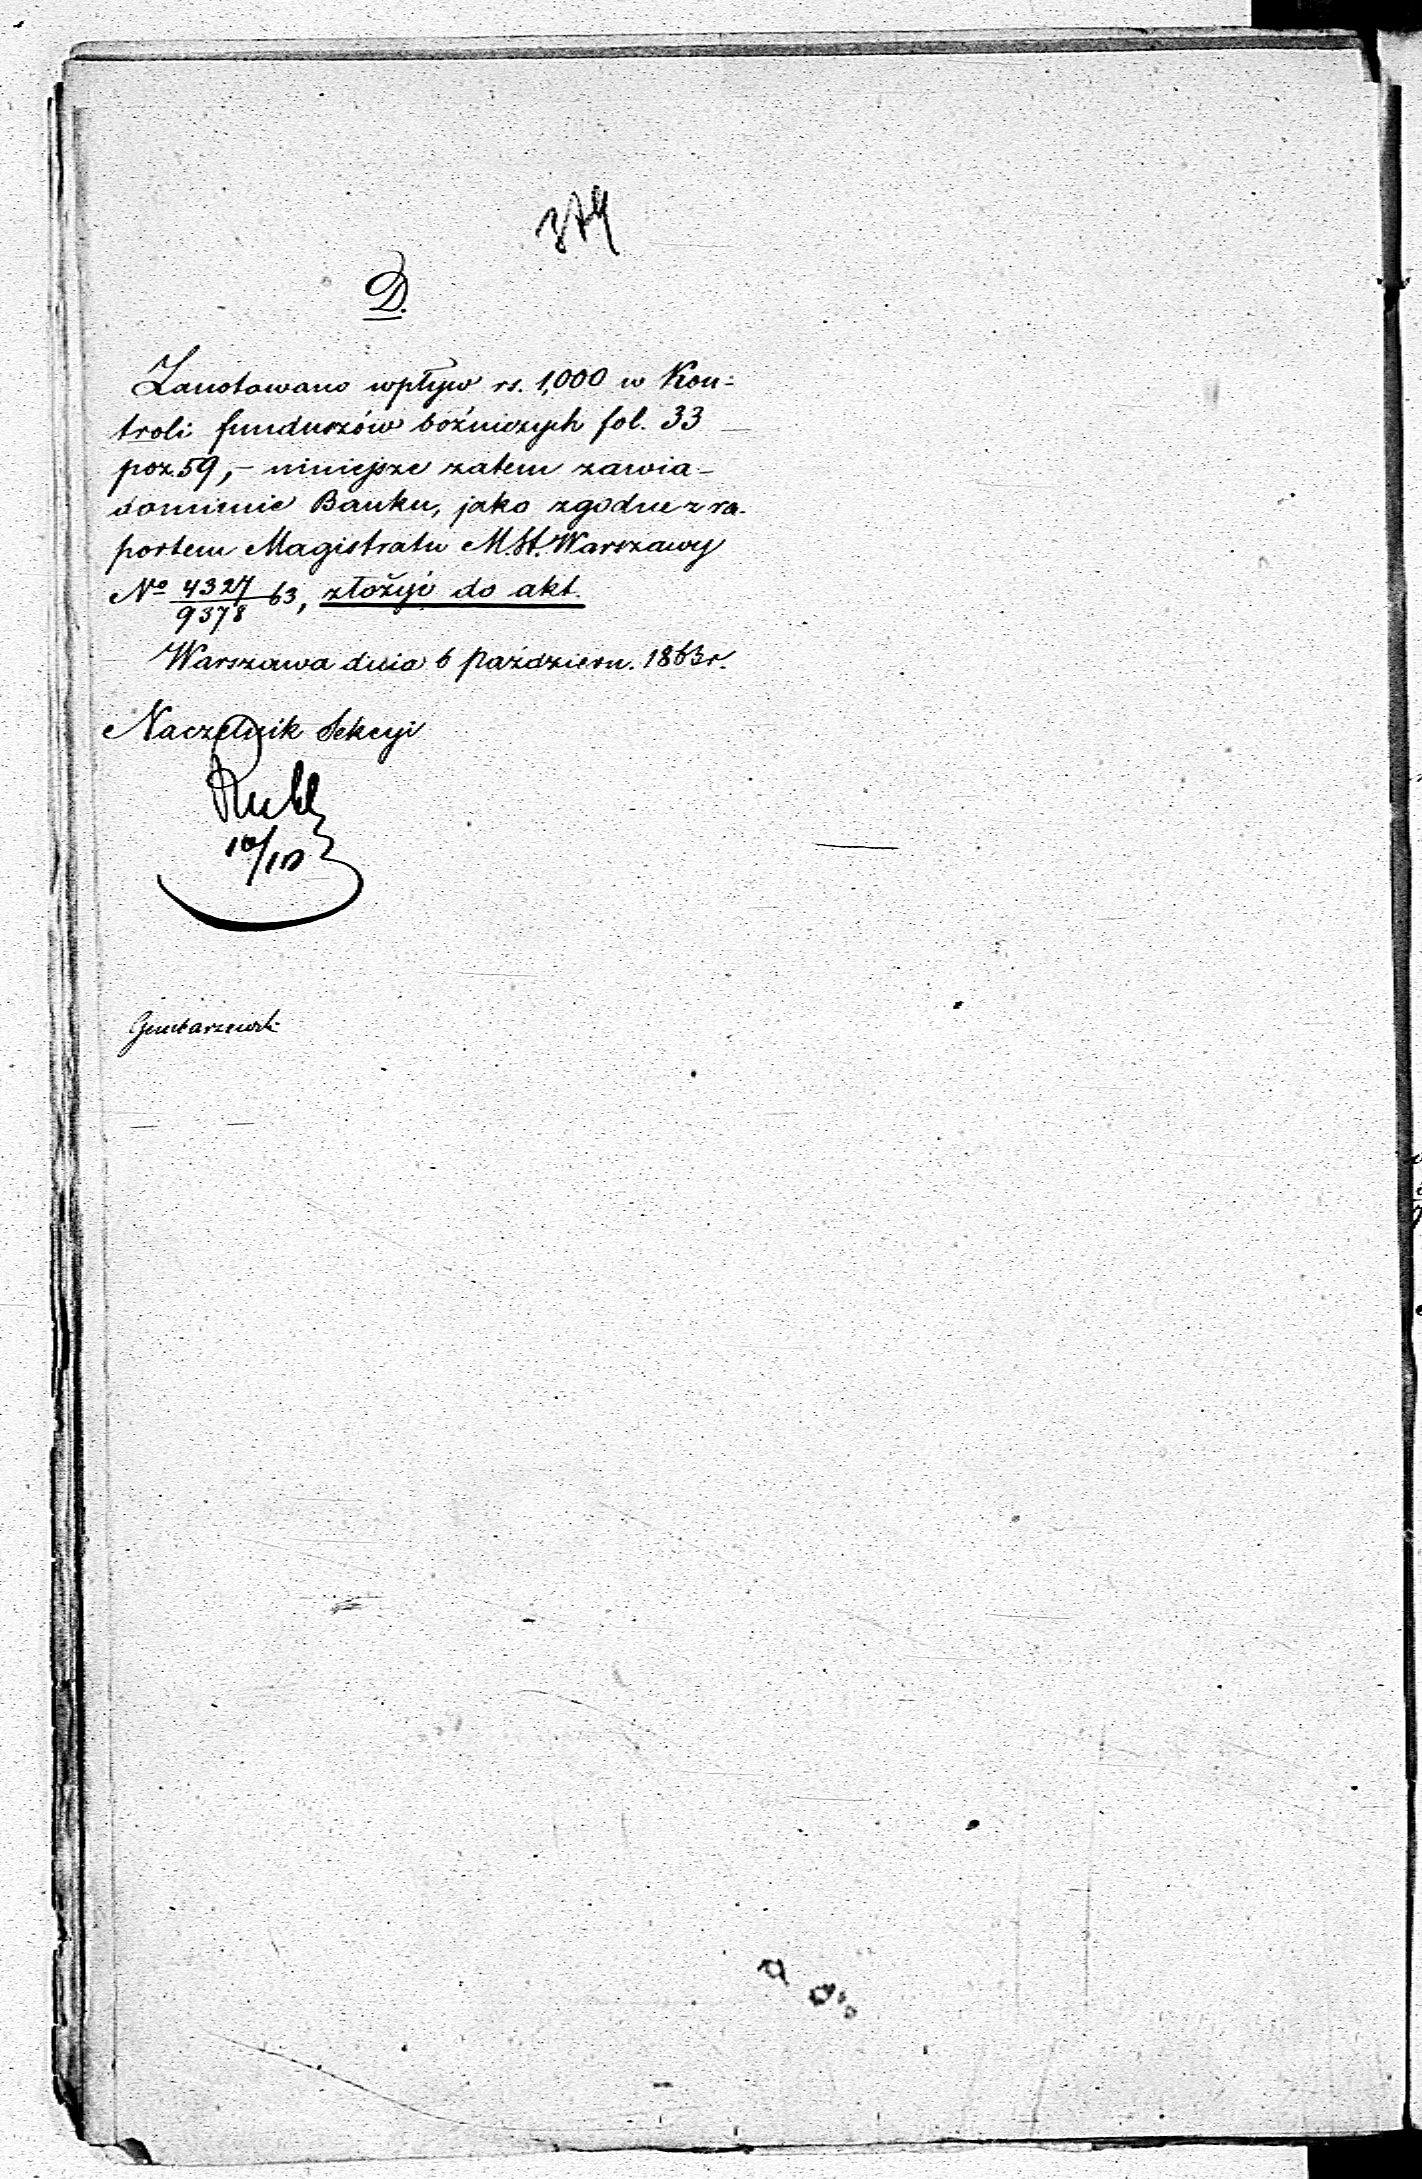 379
D.
Zanotowano wpływ rs. 1,000 w Kon-
troli funduszów bóżniczych fol. 33
poz. 59, – niniejsze zatem zawia-
domienie Banku, jako zgodne z ra-
portem Magistratu M. St. Warszawy
No 4327/9378 63, złożyć do akt.
Warszawa dnia 6 Październ. 1863 r.
Naczelnik Sekcyi
10/10